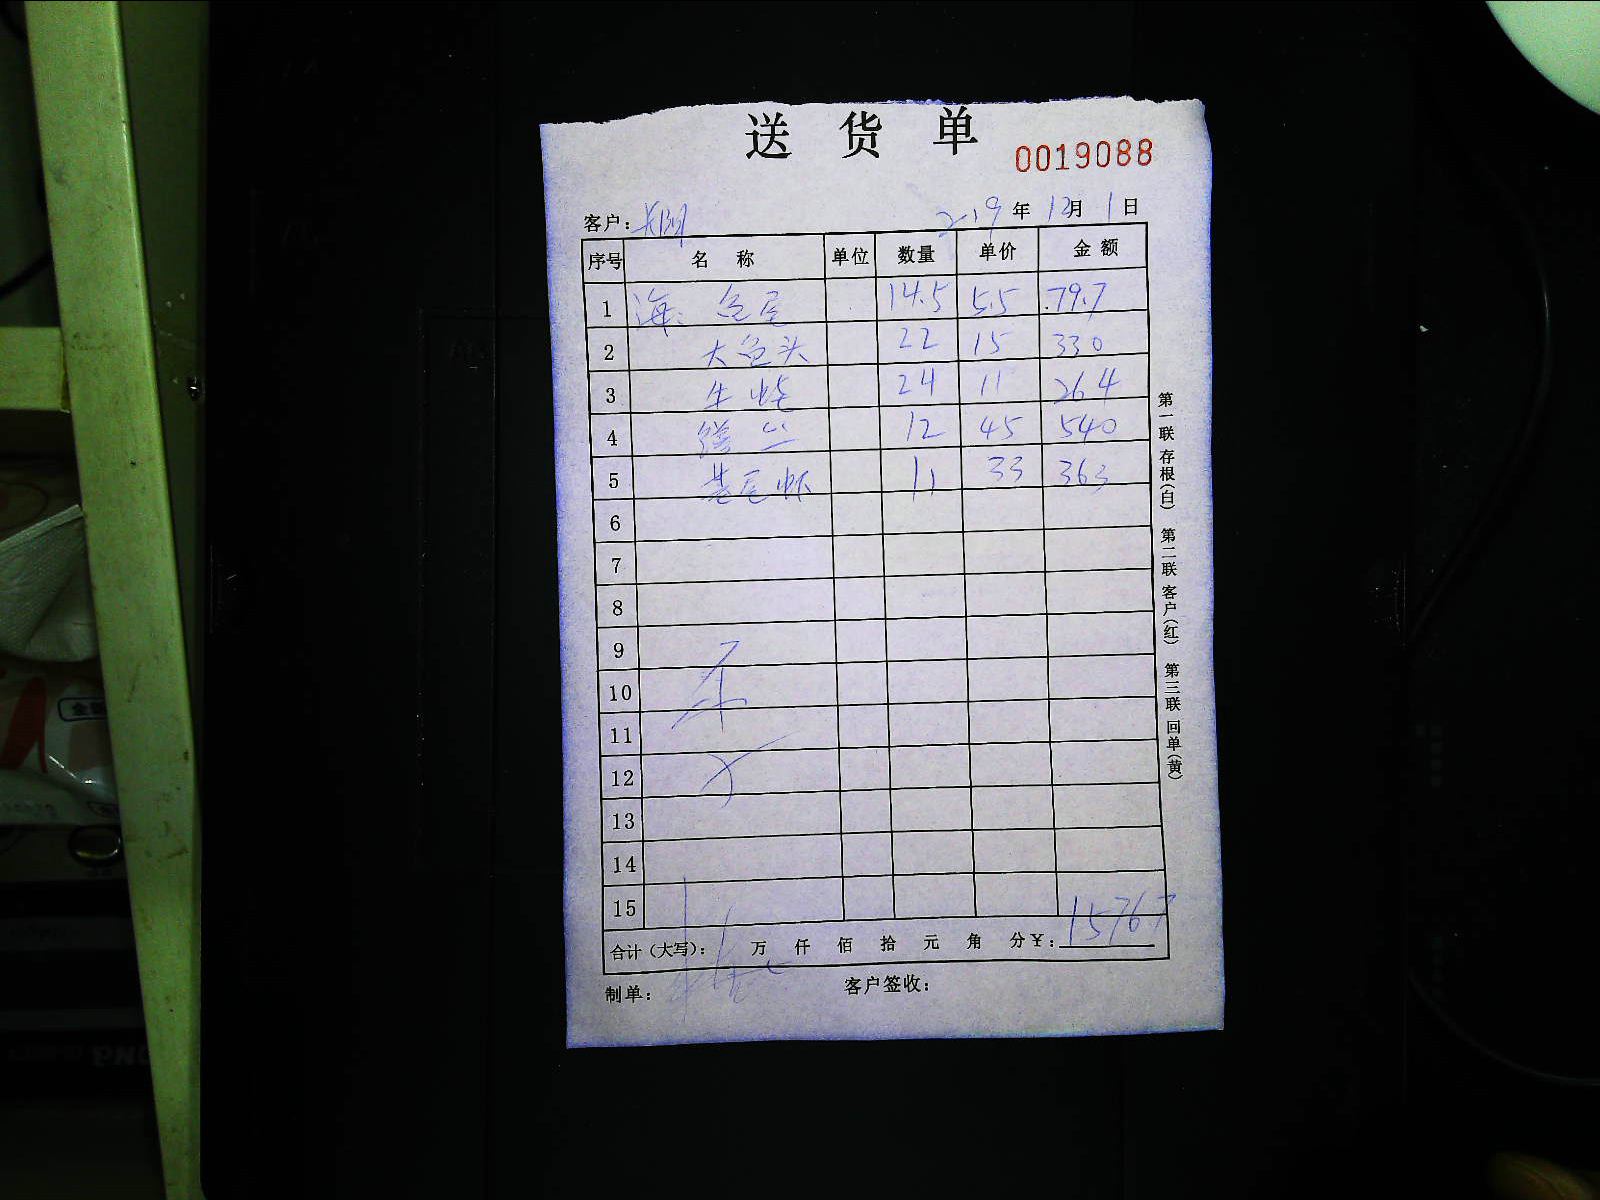 送 货 单
0019088
客户：
2019 年 12月 1日
序号 名 称 单位 数量 单价 金 额
1 海: 鱼尾 14.5 5.5 79.7
2 大鱼头 22 15 330
3 生蚝 24 11 264
4 12 45 540
5 基尾虾 11 33 363
6
7
8
9
10
11
12
13
14
15
合计（大写）： 万 仟 佰 拾 元 角 分 ¥：1576.7
制单： 客户签收：
第一联 存根（白） 第二联 客户（红） 第三联 回单（黄）